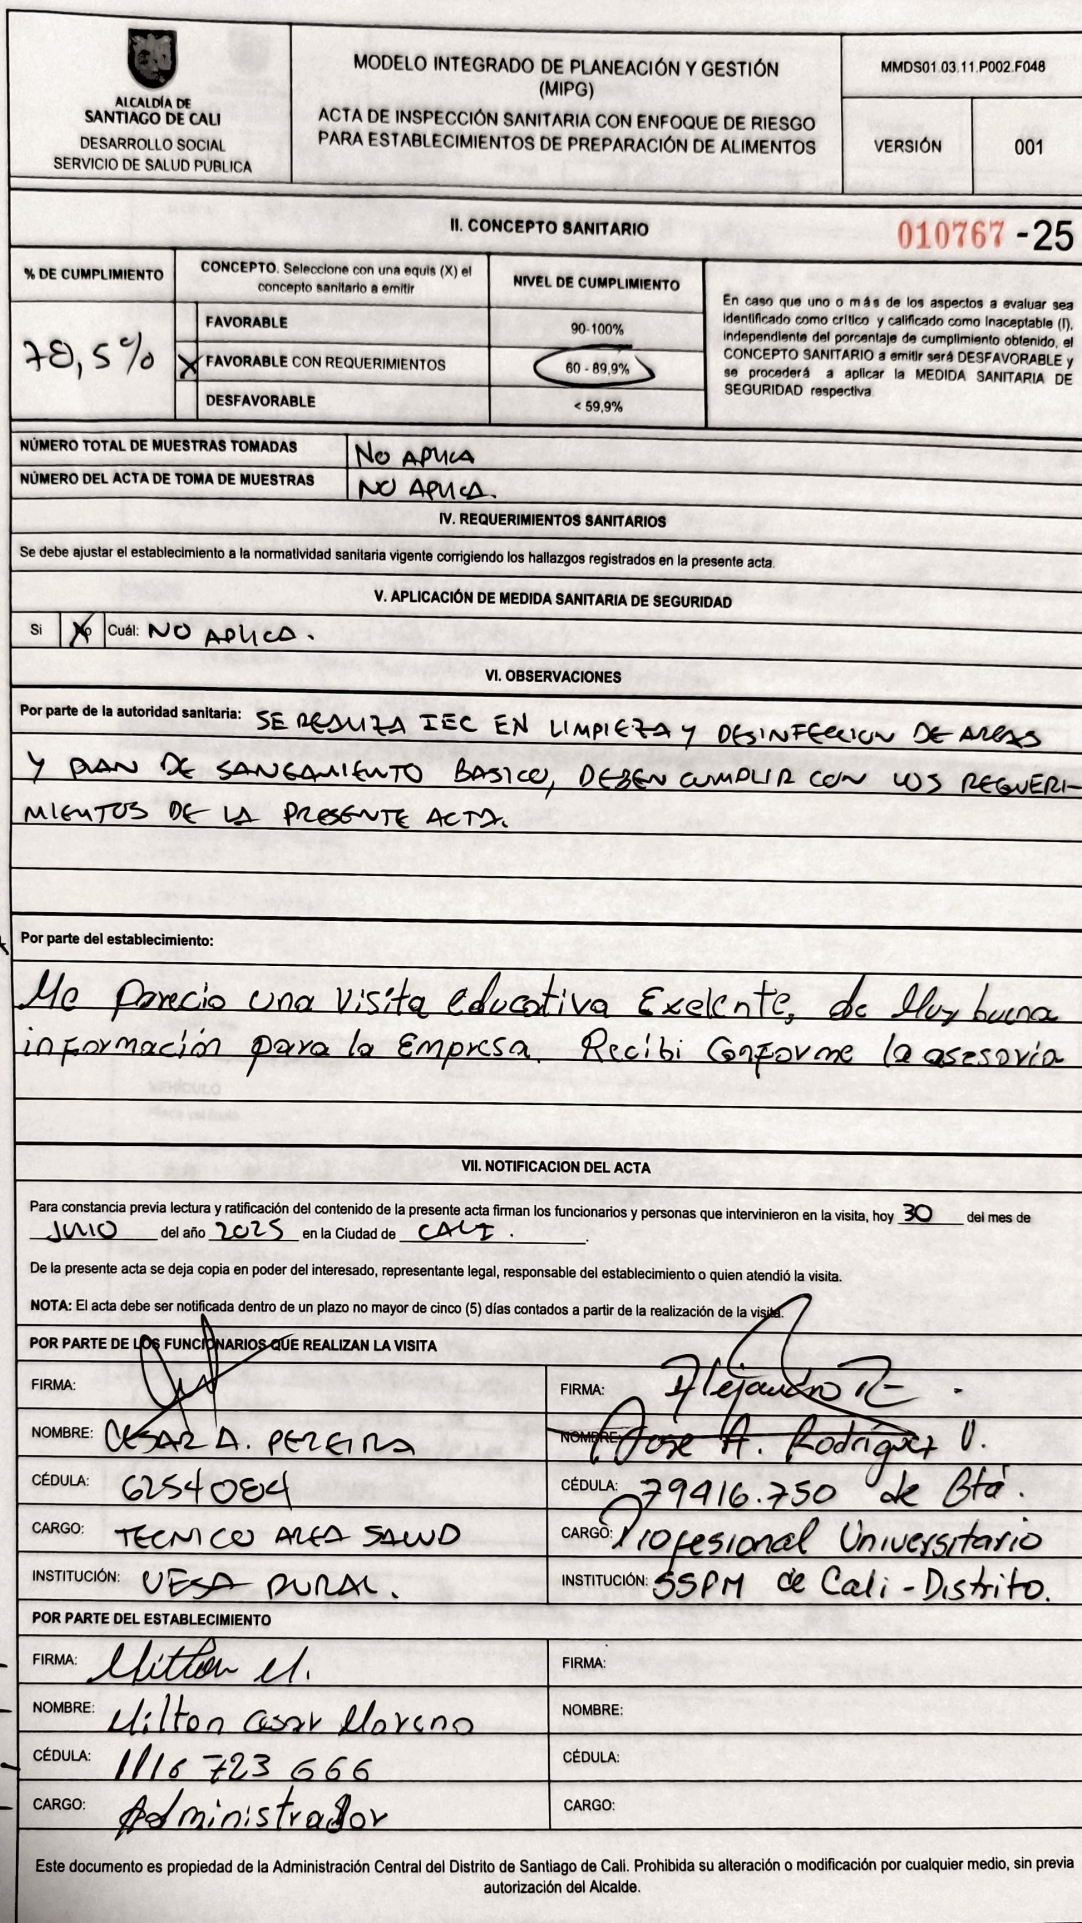 ALCALDÍA DE
SANTIAGO DE CALI
DESARROLLO SOCIAL
SERVICIO DE SALUD PUBLICA
MODELO INTEGRADO DE PLANEACIÓN Y GESTIÓN
(MIPG)
ACTA DE INSPECCIÓN SANITARIA CON ENFOQUE DE RIESGO
PARA ESTABLECIMIENTOS DE PREPARACIÓN DE ALIMENTOS
MMDS01.03.11.P002.F048
VERSIÓN
001
II. CONCEPTO SANITARIO
010767 -25
% DE CUMPLIMIENTO
78,5%
CONCEPTO. Seleccione con una equis (X) el
concepto sanitario a emitir
NIVEL DE CUMPLIMIENTO
FAVORABLE
90-100%
X FAVORABLE CON REQUERIMIENTOS
60 - 89,9%
DESFAVORABLE
< 59,9%
En caso que uno o más de los aspectos a evaluar sea
identificado como crítico y calificado como Inaceptable (I),
independiente del porcentaje de cumplimiento obtenido, el
CONCEPTO SANITARIO a emitir será DESFAVORABLE y
se procederá a aplicar la MEDIDA SANITARIA DE
SEGURIDAD respectiva
NÚMERO TOTAL DE MUESTRAS TOMADAS
No APLICA
NÚMERO DEL ACTA DE TOMA DE MUESTRAS
NO APLICA.
IV. REQUERIMIENTOS SANITARIOS
Se debe ajustar el establecimiento a la normatividad sanitaria vigente corrigiendo los hallazgos registrados en la presente acta.
V. APLICACIÓN DE MEDIDA SANITARIA DE SEGURIDAD
Si No X Cuál: NO APLICA.
VI. OBSERVACIONES
Por parte de la autoridad sanitaria: SE REALIZA IEC EN LIMPIEZA Y DESINFECCION DE AREAS
Y PLAN DE SANEAMIENTO BASICO, DEBEN CUMPLIR CON LOS REQUERI-
MIENTOS DE LA PRESENTE ACTA.
Por parte del establecimiento:
Me Parecio una visita educativa Exelente, de Muy buena
información para la Empresa. Recibi Conforme la asesoria
VII. NOTIFICACION DEL ACTA
Para constancia previa lectura y ratificación del contenido de la presente acta firman los funcionarios y personas que intervinieron en la visita, hoy 30 del mes de
JULIO del año 2025 en la Ciudad de CALI.
De la presente acta se deja copia en poder del interesado, representante legal, responsable del establecimiento o quien atendió la visita.
NOTA: El acta debe ser notificada dentro de un plazo no mayor de cinco (5) días contados a partir de la realización de la visita.
POR PARTE DE LOS FUNCIONARIOS QUE REALIZAN LA VISITA
FIRMA:
FIRMA: Alejandro R
NOMBRE: CESAR A. PEREIRA
NOMBRE: Jose A. Rodríguez V.
CÉDULA: 6254084
CÉDULA: 79416.750 de Btá.
CARGO: TECNICO AREA SALUD
CARGO: Profesional Universitario
INSTITUCIÓN: UESA RURAL.
INSTITUCIÓN: SSPM de Cali - Distrito.
POR PARTE DEL ESTABLECIMIENTO
FIRMA: Milton M.
FIRMA:
NOMBRE: Milton Cesar Moreno
NOMBRE:
CÉDULA: 1116 723 666
CÉDULA:
CARGO: Administrador
CARGO:
Este documento es propiedad de la Administración Central del Distrito de Santiago de Cali. Prohibida su alteración o modificación por cualquier medio, sin previa
autorización del Alcalde.